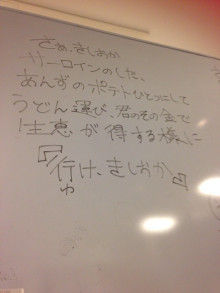 さぁ、きしおか
サーロインのした、
あんずのポテトひとつにして
うどん選び、君のその金で
生恵が得する様に
『行け、きしおか』
ゆ